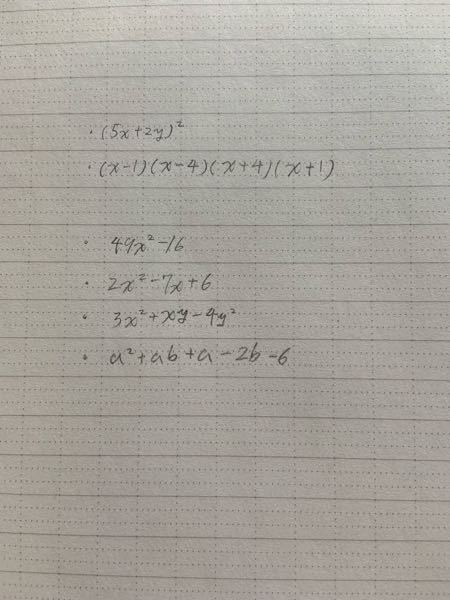 ・(5x+2y)²
・(x-1)(x-4)(x+4)(x+1)
・49x²-16
・2x²-7x+6
・3x²+xy-4y²
・a²+ab+a-2b-6